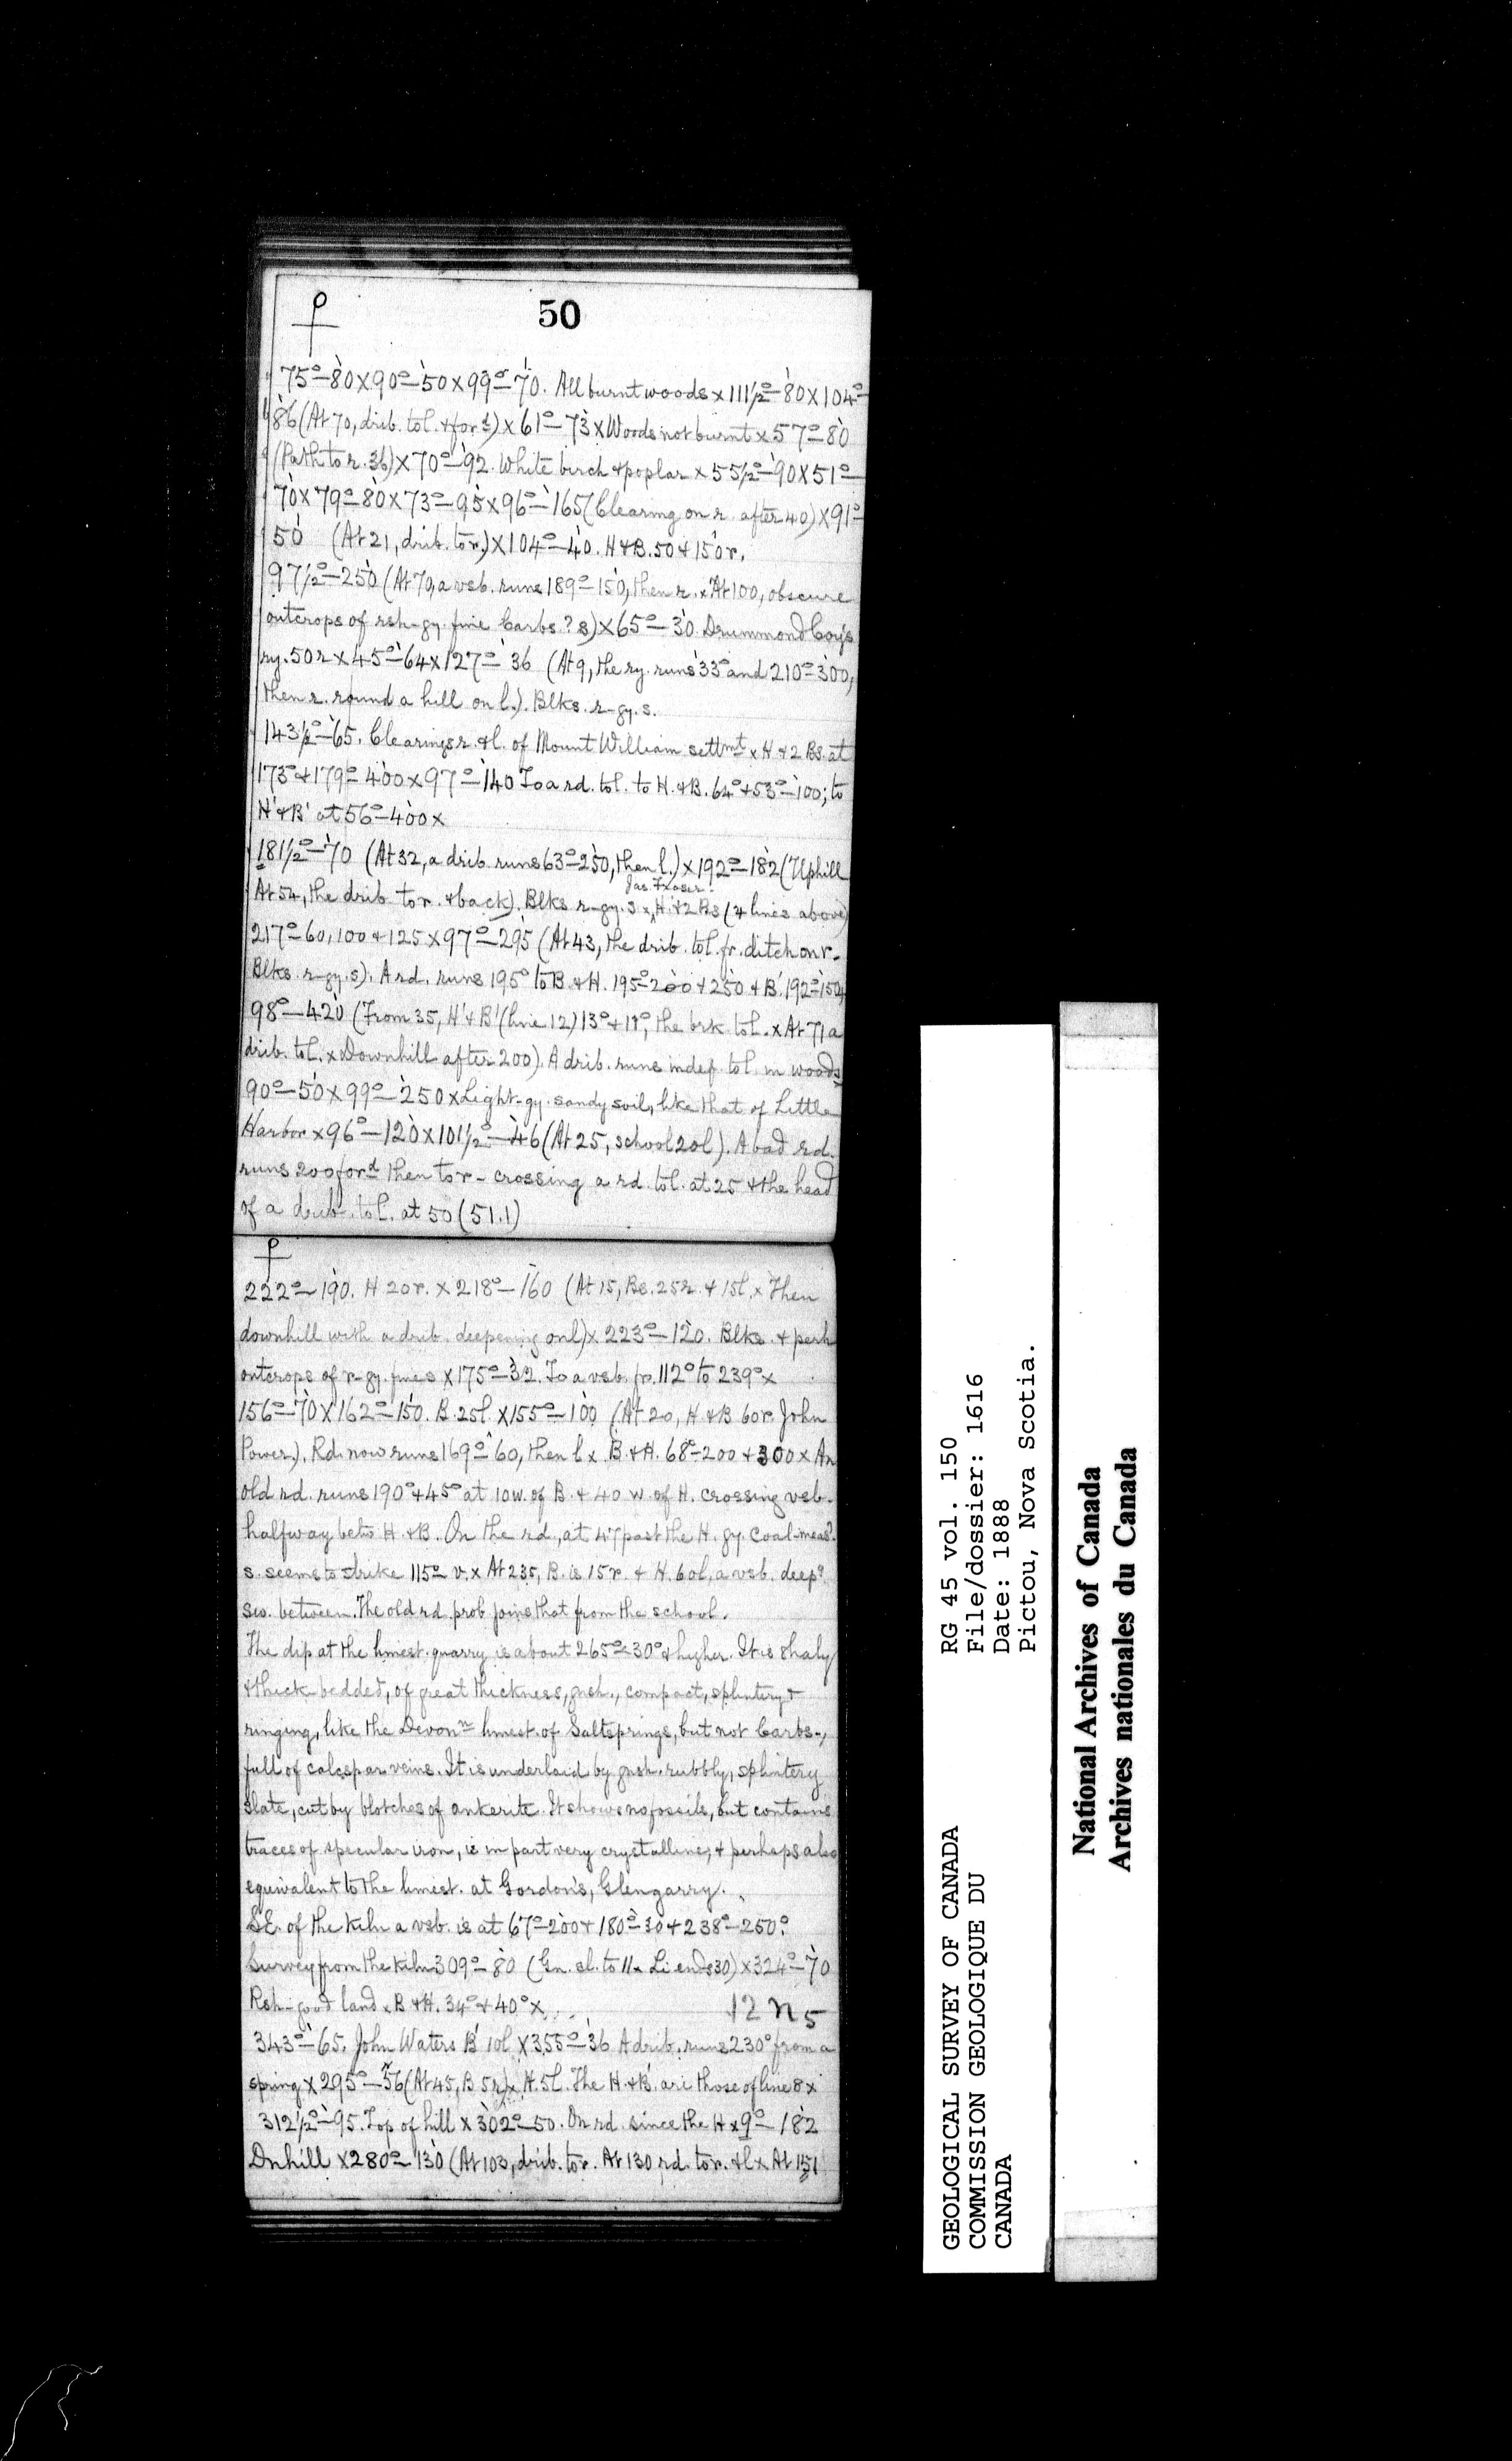 50
75°–80 x 90°–50 x 99°–70. All burnt woods x 111½°–80 x 104°–
86 (At 70, drib. to l. & ford) x 61°–73 x Woods not burnt x 57°–80
(Path to r. 36) x 70°–92. White birch & poplar x 55½°–90 x 51°–
70 x 79°–80 x 73°–95 x 96°–165 (Clearing on r. after 40) x 91°–
50 (At 21, drib. to r.) x 104°–40. H & B. 50 & 150 r.
97½°–250 (At 70, a vsb. runs 189°–150, then r. x At 100, obscure
outcrops of rsh-gy. fine Carbs? s) x 65°–30. Drummond Coy's
ry. 50 r x 45°–64 x 127°–36 (At 9, the ry. runs 33° and 210°–300,
then r. round a hill on l.). Blks. r-gy. s.
143½°–65. Clearings r. & l. of Mount William settmt x H & 2 Bs. at
173° & 179°–400 x 97°–140 To a rd. to l. to H. & B. 64° & 53°–100; to
H' & B' at 56°–400 x
181½°–70 (At 32, a drib. runs 63°–250, then l.) x 192°–182 (Uphill
Jas. Fraser.
At 54, the drib to r. & back). Blks r-gy. s x H. & 2 Bs (4 lines above)
217°–60, 100 & 125 x 97°–295 (At 43, the drib. to l. fr. ditch on r.
Blks. r-gy. s). A rd. runs 195° to B. & H. 195°–200 & 250 & B' 192°–150,
98°–420 (From 35, H' & B' (line 12) 13° & 11°, the brk to l. x At 71 a
drib. to l. x Downhill after 200). A drib. runs indef. to l. in woods
90°–50 x 99°–250 x Light-gy. sandy soil, like that of Little
Harbor x 96°–120 x 101½°–46 (At 25, school 20 l). A bad rd.
runs 200 ford then to r – crossing a rd. to l. at 25 & the head
of a drib. to l. at 50 (51.1)
222°–190. H 20 r. x 218°–160 (At 15, Bs. 25 r. & 15 l. x Then
downhill with a drib. deepening on l) x 223°–120. Blks. & perh
outcrops of r-gy. fines x 175°–32. To a vsb. fr. 112° to 239° x
156°–70 x 162°–150. B. 25 l. x 155°–100 (At 20, H. & B 60 r. John
Power). Rd. now runs 169°–60, then l x B. & H. 68°–200 & 300 x An
old rd. runs 190° & 45° at 10 w. of B. & 40 w. of H. crossing vsb.
halfway betw H. & B. On the rd., at 47 past the H. gy. coal-meas?
s. seems to strike 115° v. x At 235, B. is 15 r. & H. 60 l, a vsb. deep?
sw. between. The old rd. prob joins that from the school.
The dip at the limest. quarry is about 265°<30° & higher. It is shaly
& thick-bedded, of great thickness, gnsh., compact, splintery &
ringing, like the Devonn limest. of Saltsprings, but not Carbs.,
full of calcspar veins. It is underlaid by gnsh. rubbly, splintery
slate, cut by blotches of ankerite. It shows no fossils, but contains
traces of specular iron, is in part very crystalline, & perhaps also
equivalent to the limest. at Gordon's, Glengarry.
SE. of the kiln a vsb. is at 67°–200 & 180°–30 & 238°–250?
Survey from the kiln 309°–80 (Gn. sl. to 11 x Li ends 30) x 324°–70
Rsh-good land x B & H. 34° & 40° x
12 n 5
343°–65. John Waters B' 10 l x 355°–36 A drib. runs 230° from a
spring x 295°–56 (At 45, B 5 r) x H. 5 l. The H. & B. are those of line 8 x
312½°–95. Top of hill x 302°–50. On rd. since the H x 9°–182
Dnhill x 280°–130 (At 103, drib. to r. At 130 rd. to r. & l x At 151
GEOLOGICAL SURVEY OF CANADA
COMMISSION GEOLOGIQUE DU
CANADA
RG 45 vol. 150
File/dossier: 1616
Date: 1888
Pictou, Nova Scotia.
National Archives of Canada
Archives nationales du Canada